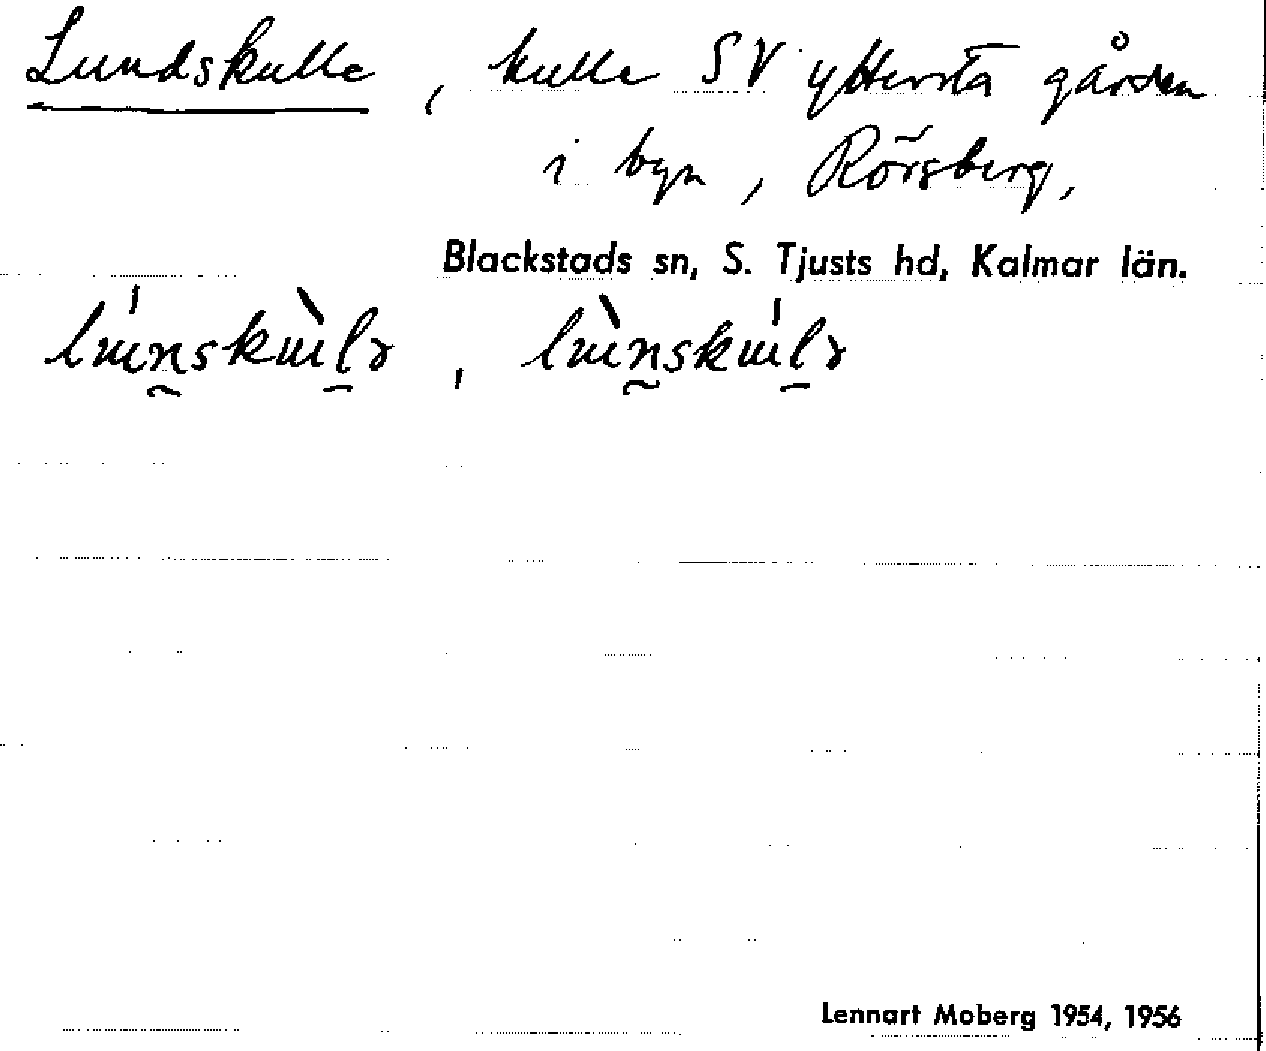 Lundskulle, kulle SV yttersta gården
i byn, Rörsberg,
Blackstads sn, S. Tjusts hd, Kalmar län.
Lennart Moberg 1954, 1956